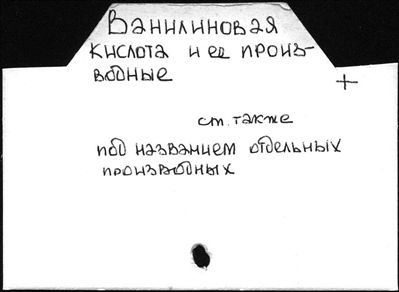 Ванилиновая
кислота и ее произ-
водные
+
ст. также
под названием отдельных
производных